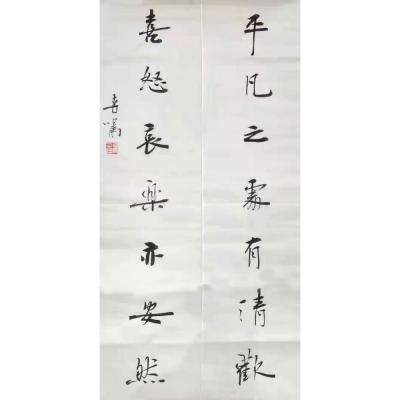 平凡之處有清歡
喜怒哀樂亦安然